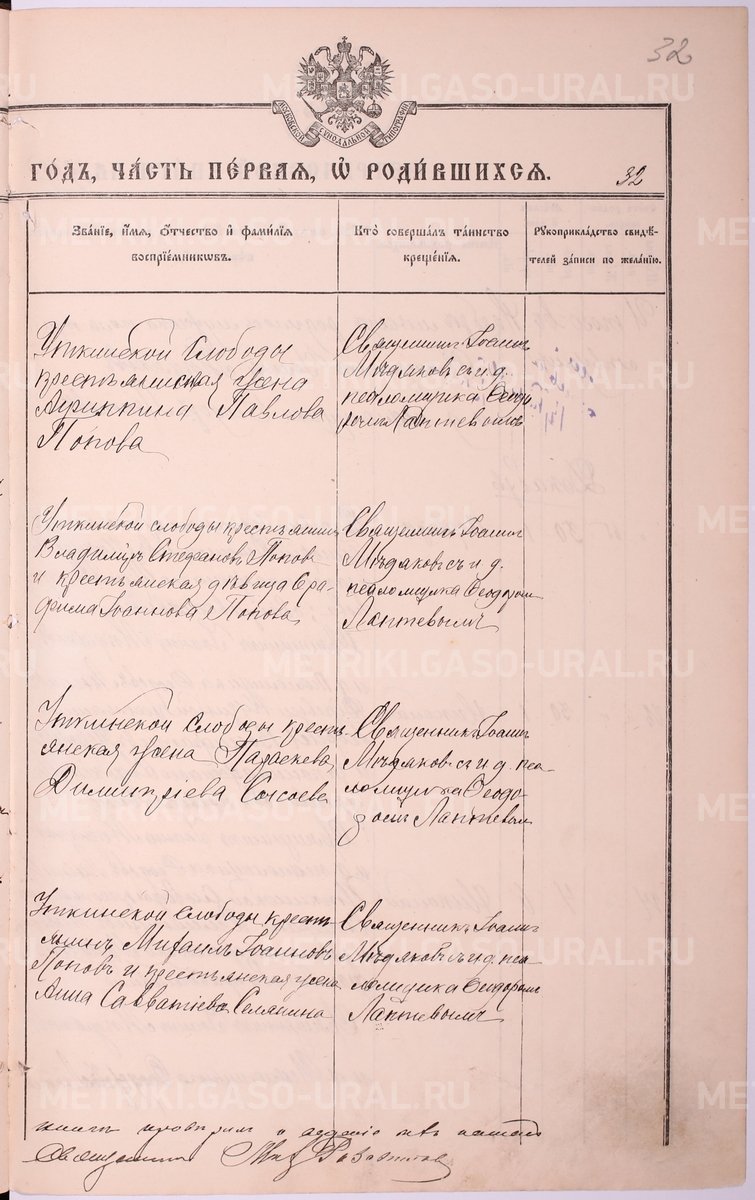 32
МОСКОВСКОЙ СУНОДАЛЬНОЙ ТИПОГРАФІИ
ГОДЪ, ЧАСТЬ ПЕРВАЯ, Ѡ РОДИВШИХСЯ.
32
Званіе, имя, отчество и фамилія воспріемниковъ.
Кто совершалъ таинство крещенія.
Рукоприкладство свидѣтелей записи по желанію.
Уткинской Слободы
крестьянская жена
Агриппина Павлова
Попова
Священникъ Іоаннъ
Мѣдяковъ съ и. д.
псаломщика Ѳеодо-
ромъ Лаптевымъ
Уткинской слободы крестьянинъ
Владиміръ Стефановъ Поповъ
и крестьянская дѣвица Сера-
фима Іоаннова Попова
Священникъ Іоаннъ
Мѣдяковъ съ и. д.
псаломщика Ѳеодоромъ
Лаптевымъ
Уткинской Слободы кресть-
янская жена Параскева
Димитріева Сысоева
Священникъ Іоаннъ
Мѣдяковъ съ и. д. пса-
ломщика Ѳеодо-
ромъ Лаптевым
Уткинской Слободы кресть-
янинъ Михаилъ Іоанновъ
Поповъ и крестьянская жена
Анна Савватіева Селянина
Священникъ Іоаннъ
Мѣдяковъ съ и. д. пса-
ломщика Ѳеодоромъ
Лаптевымъ
священникъ
METRIKI.GASO-URAL.RU